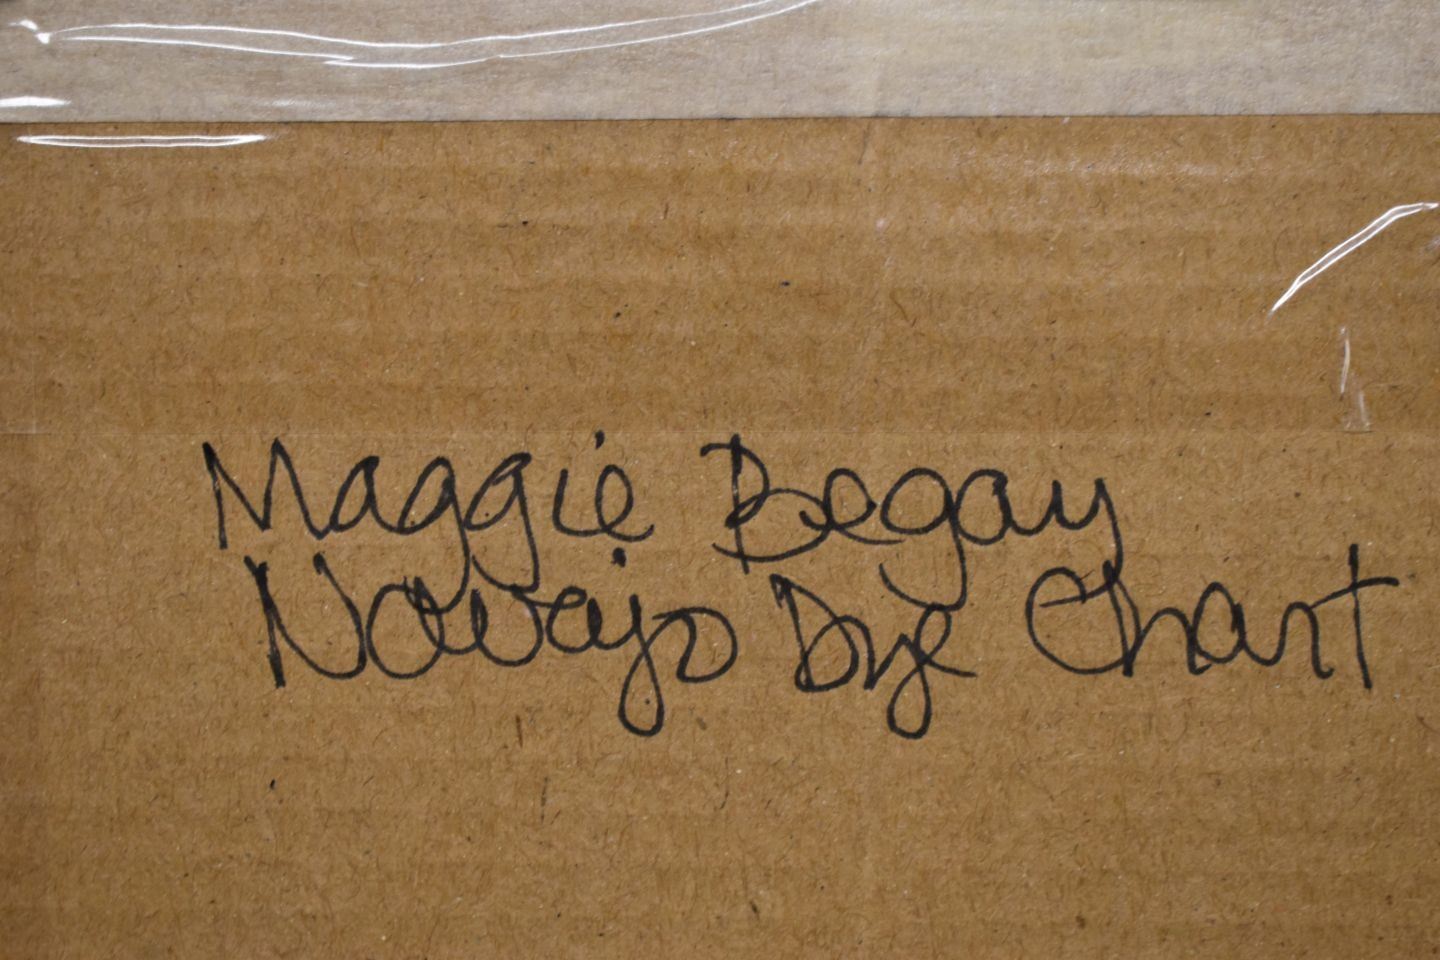 Maggie Begay
Navajo Dye Chart